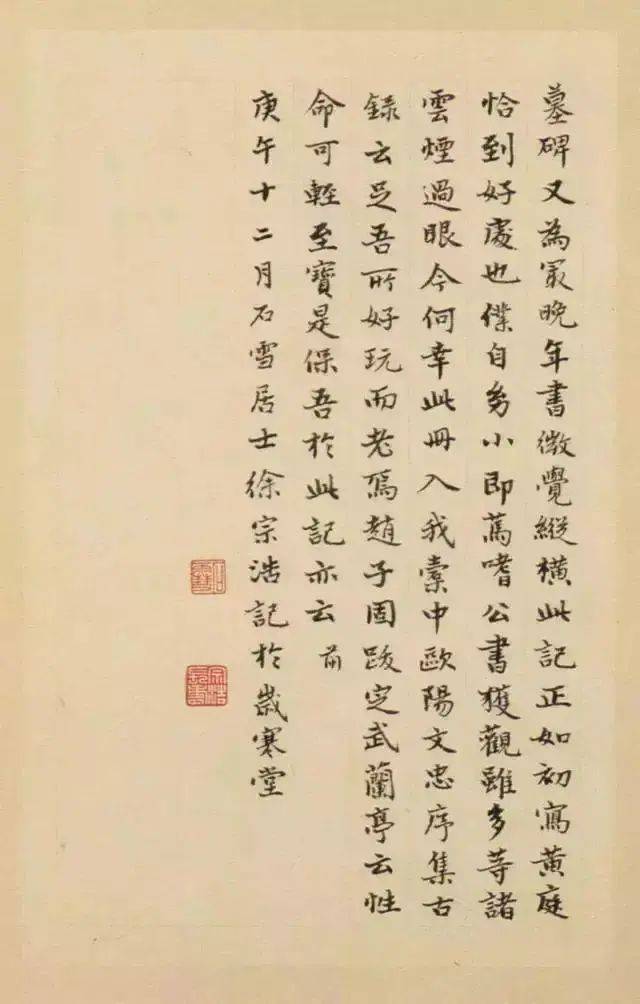 墓碑又為冣晚年書微覺縱橫此記正如初寫黃庭
恰到好處也僕自幼小即篤嗜公書獲觀雖多等諸
雲煙過眼今何幸此冊入我橐中歐陽文忠序集古
錄云足吾所好玩而老焉趙子固跋定武蘭亭云性
命可輕至寶是保吾於此記亦云
庚午十二月石雪居士徐宗浩記於歲寒堂
石雪